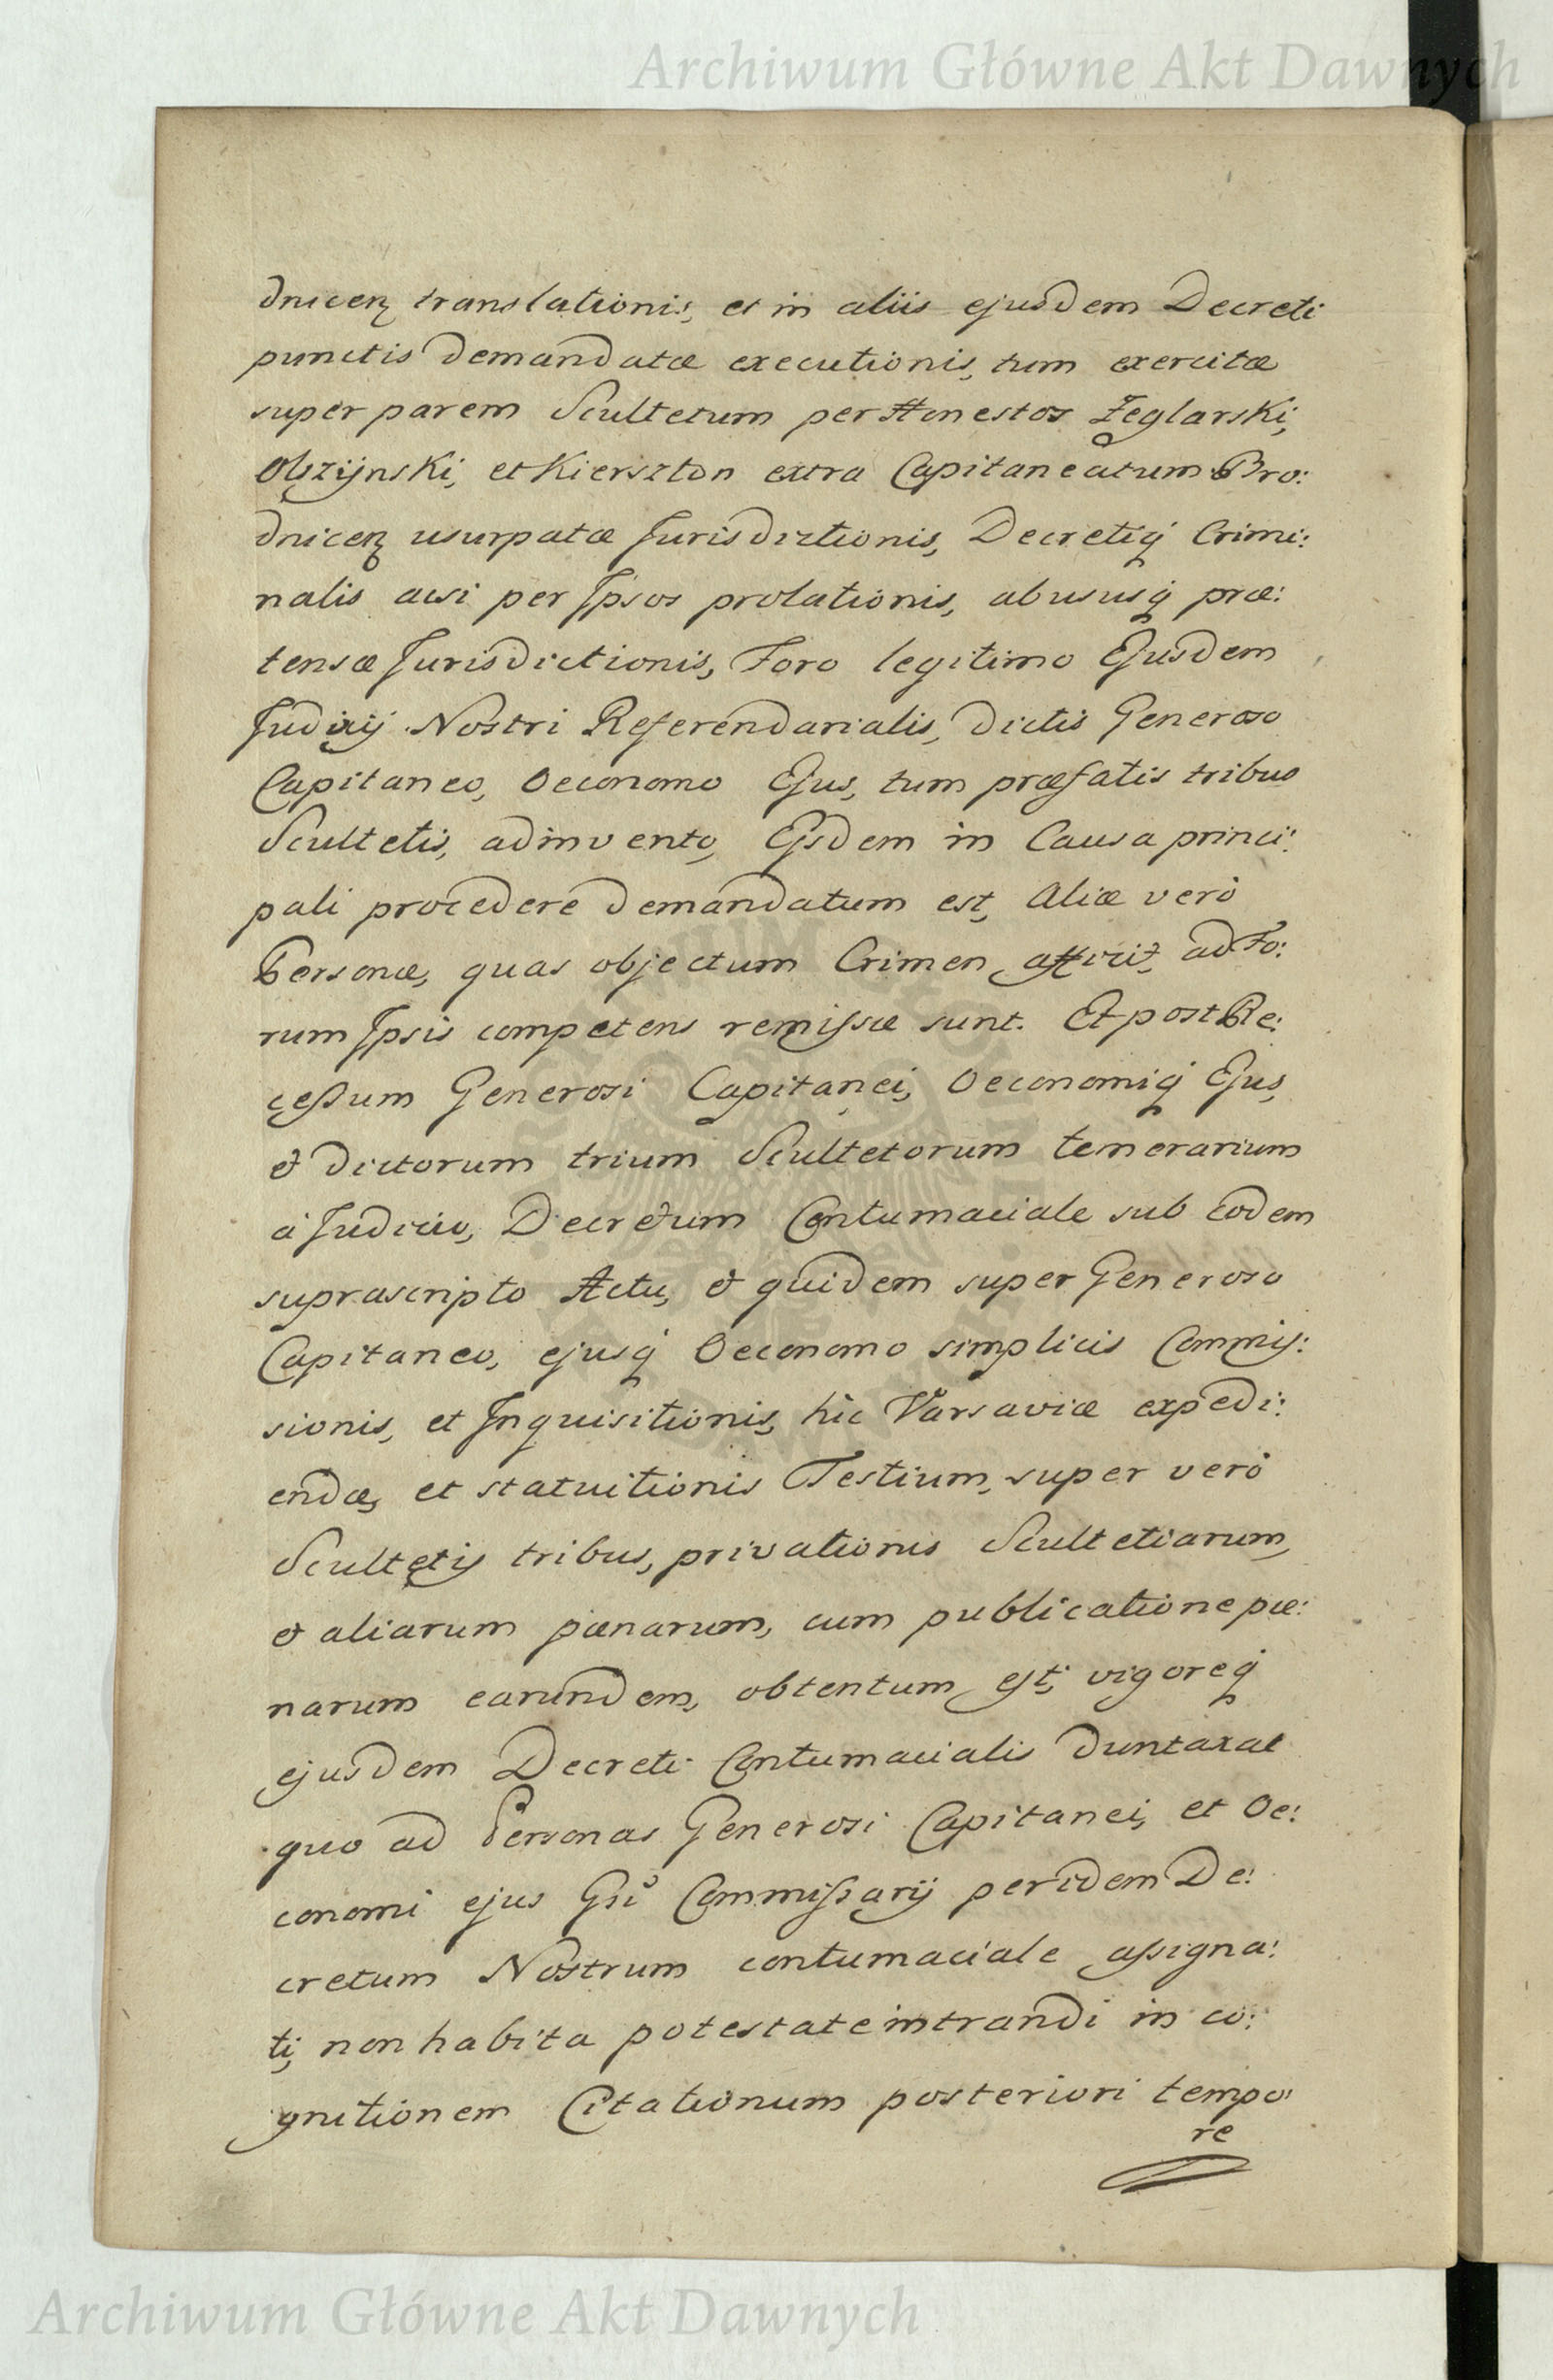 Archiwum Główne Akt Dawnych
dnicen translationis, et in aliis ejusdem Decreti
punctis demandatæ executionis, tum exercitæ
super parem Scultetum per Honestos Żeglarski,
Olszyński, et Kierszton extra Capitaneatum Bro:
dnicen usurpatæ Jurisdictionis, Decretiq Crimi:
nalis acsi per Ipsos prolationis, abususq præ:
tensæ Jurisdictionis, Foro legitimo Ejusdem
Judicij Nostri Referendarialis, dictis Generoso
Capitaneo, Oeconomo Ejus, tum præfatis tribus
Scultetis, adinvento, Ejsdem in Causa princi:
pali procedere demandatum est, Aliæ verò
Personæ, quas objectum Crimen afficit, ad Fo:
rum Ipsis competens remissæ sunt. Et post Re:
cessum Generosi Capitanei, Oeconomiq Ejus,
et dictorum trium Scultetorum temerarium
à Judicio, Decretum Contumaciale sub eodem
suprascripto Actu, et quidem super Generoso
Capitaneo, ejusq Oeconomo simplicis Commis:
sionis, et Inquisitionis, hic Varsaviæ expedi:
endæ, et statuitionis Testium, super verò
Scultetis tribus, privationis Scultetiarum,
et aliarum pænarum, cum publicatione pæ:
narum earundem, obtentum est; vigoreq
ejusdem Decreti Contumacialis duntaxat
quo ad Personas Generosi Capitanei, et Oe:
conomi ejus Gsi Commissarij per idem De:
cretum Nostrum contumaciale assigna:
ti, non habita potestate intrandi in co:
gnitionem Citationum posteriori tempo:
re
Archiwum Główne Akt Dawnych